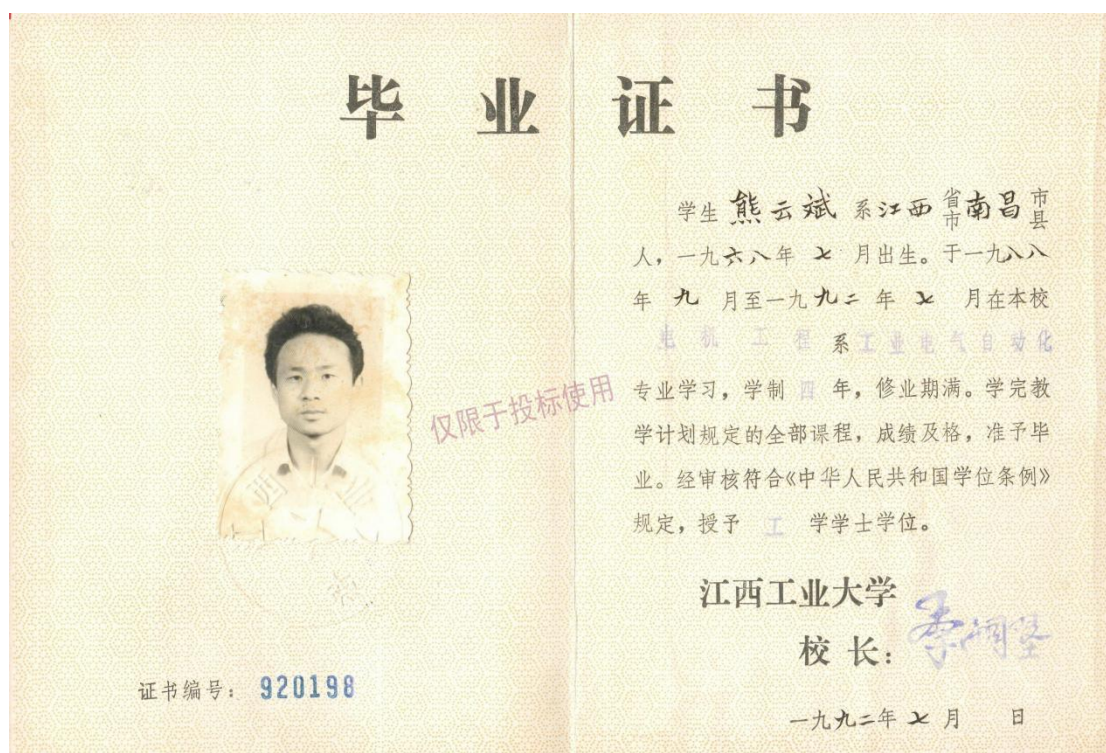 毕业证书
学生 熊云斌 系江西省市南昌市县
人，一九六八年 七 月出生。于一九八八
年 九 月至一九九二 年 七 月在本校
电机工程 系工业电气自动化
专业学习，学制 四 年，修业期满。学完教
学计划规定的全部课程，成绩及格，准予毕
业。经审核符合《中华人民共和国学位条例》
规定，授予 工 学学士学位。
江西工业大学
校长：
一九九二年 七 月 日
仅限于投标使用
证书编号：920198